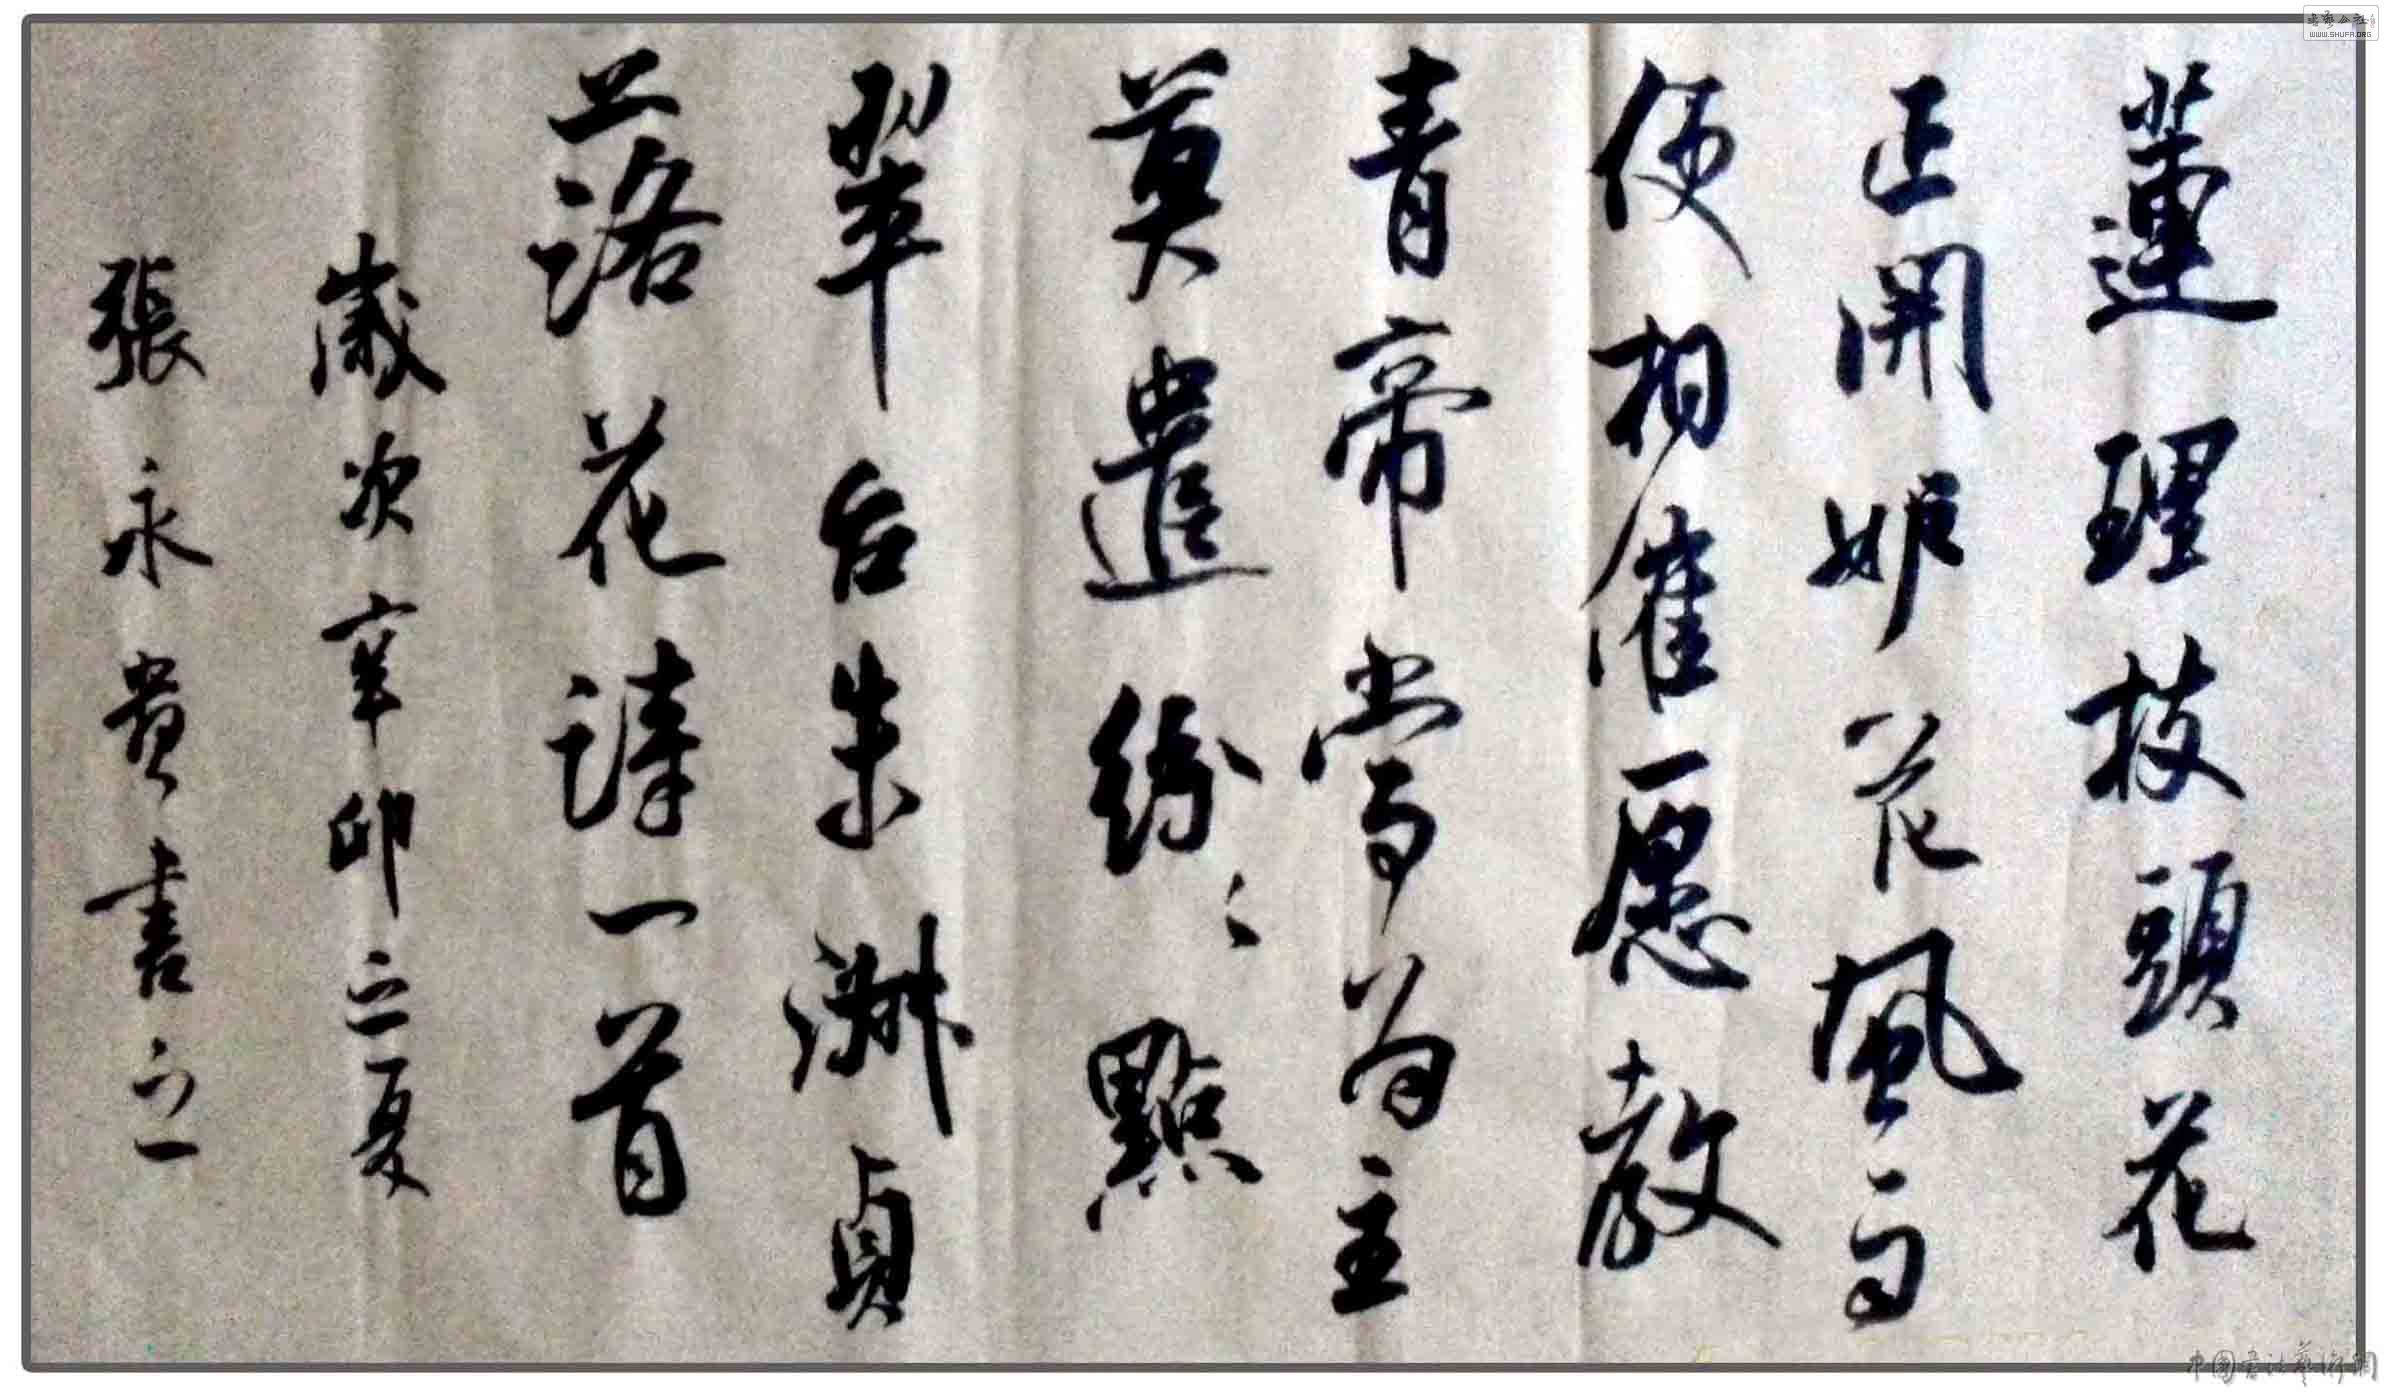 蓮理枝頭花
正開妒花風雨
便相催愿教
青帝常为主
莫遣紛々點
翠台朱淑貞
落花詩一首
歲次辛卯之夏
張永貴書之
书艺公社
WWW.SHUFA.ORG
中國书法藝術網